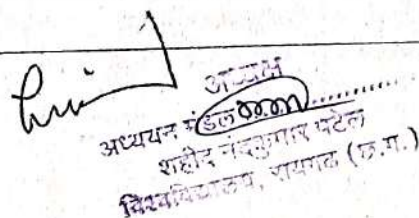 अध्यक्ष
अध्ययन मंडल ..........
शहीद नंदकुमार पटेल
विश्वविद्यालय, रायगढ़ (छ.ग.)